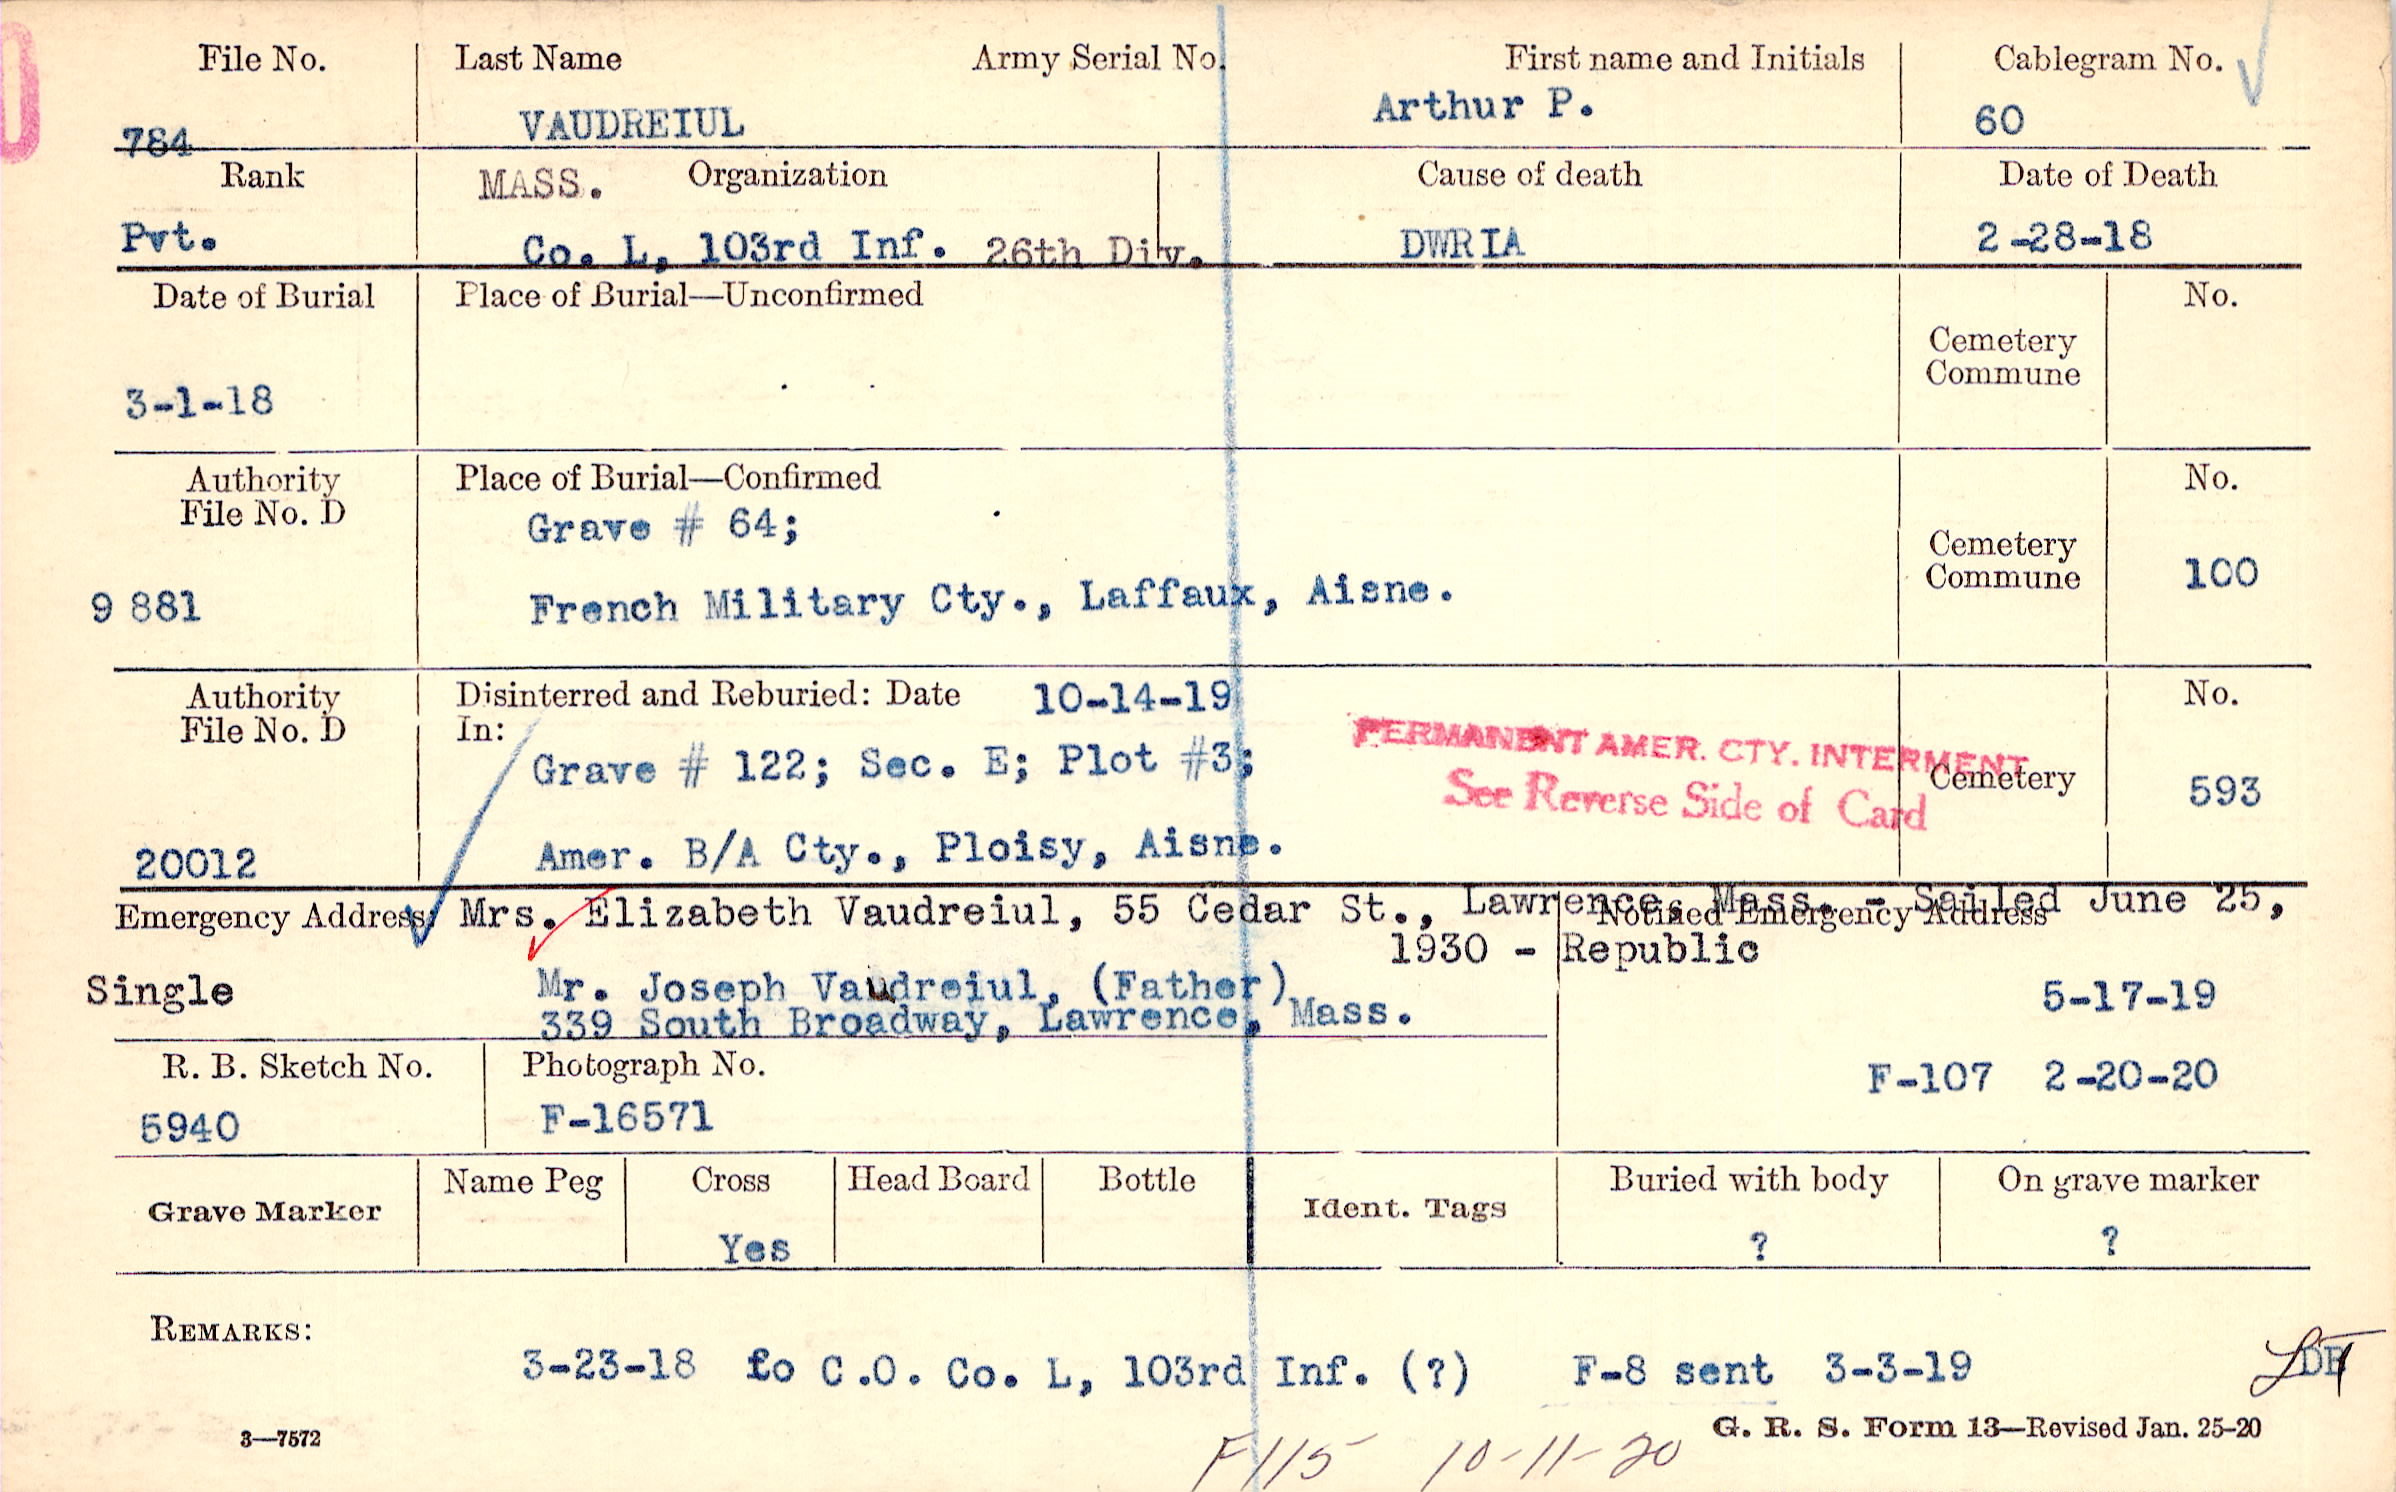 File No. Last Name Army Serial No. First name and Initials Cablegram No.
784 VAUDREIUL Arthur P. 60
Rank MASS. Organization Cause of death Date of Death
Pvt. Co. L, 103rd Inf. 26th Div. DWRIA 2-28-18
Date of Burial Place of Burial—Unconfirmed No.
Cemetery
Commune
3-1-18
Authority Place of Burial—Confirmed No.
File No. D Grave # 64;
Cemetery
Commune 100
9 881 French Military Cty., Laffaux, Aisne.
Authority Disinterred and Reburied: Date 10-14-19 No.
File No. D In:
PERMANENT AMER. CTY. INTERMENT
Grave # 122; Sec. E; Plot #3; Cemetery 593
See Reverse Side of Card
20012 Amer. B/A Cty., Ploisy, Aisne.
Emergency Address Mrs. Elizabeth Vaudreiul, 55 Cedar St., Lawrence, Mass. - Sailed June 25,
Notified Emergency Address
1930 - Republic
Single Mr. Joseph Vaudreiul, (Father) 5-17-19
339 South Broadway, Lawrence, Mass.
R. B. Sketch No. Photograph No. F-107 2-20-20
5940 F-16571
Grave Marker Name Peg Cross Head Board Bottle Ident. Tags Buried with body On grave marker
Yes ? ?
REMARKS:
3-23-18 fo C.O. Co. L, 103rd Inf. (?) F-8 sent 3-3-19
3—7572 G. R. S. Form 13—Revised Jan. 25-20
F115 10-11-20